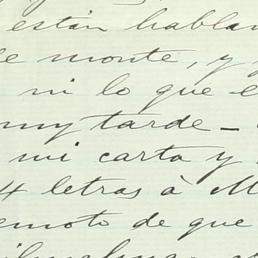 están habla
de monte, y
ni lo que e
muy tarde _
mi carta y
4 letras á M
emoto de que